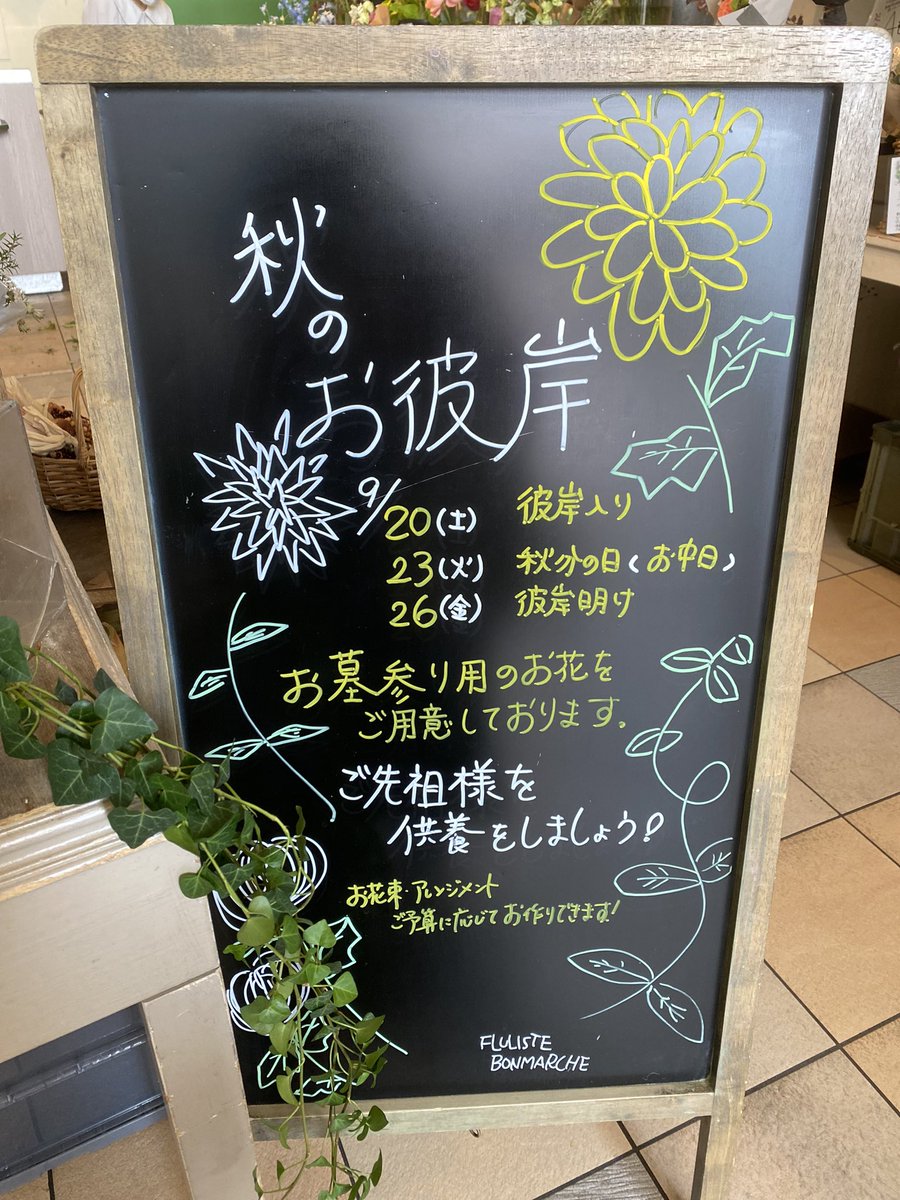 秋の
お彼岸
9/20(土) 彼岸入り
23(火) 秋分の日(お中日)
26(金) 彼岸明け
お墓参り用のお花を
ご用意しております。
ご先祖様を
供養をしましょう!
お花束・アレンジメント
ご予算に応じてお作りできます!
FLULISTE
BONMARCHE